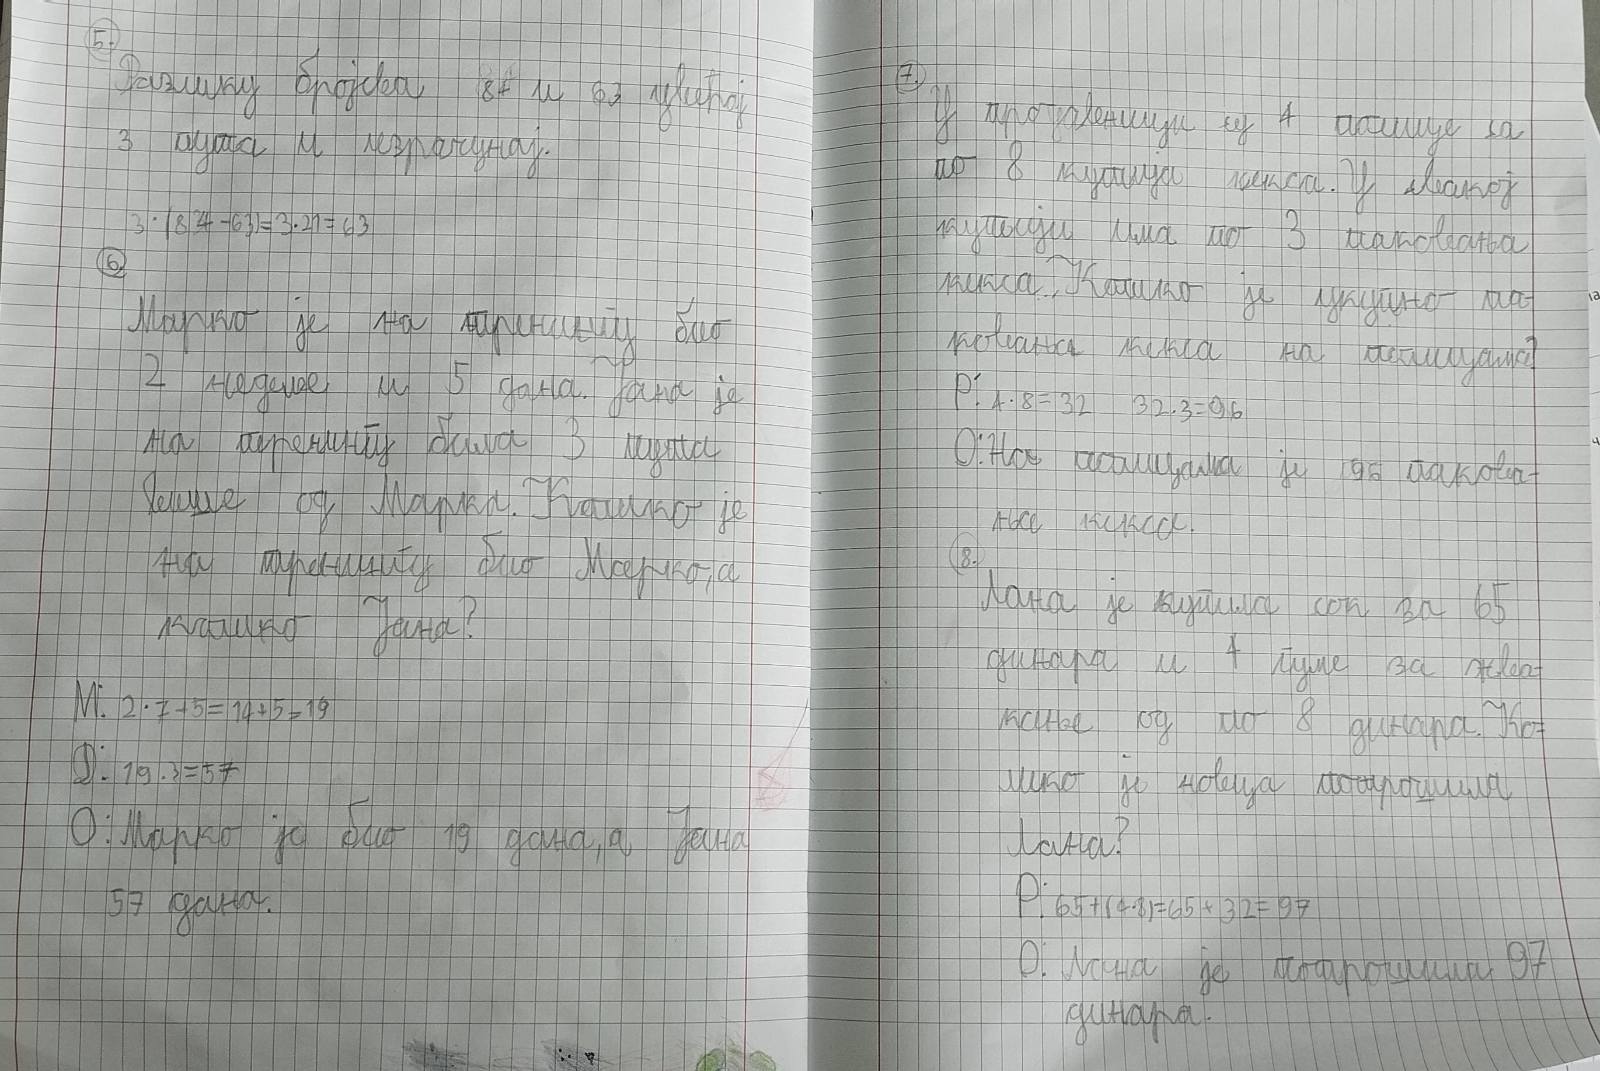 5.
Разлику бројева 84 и 63 увећај
3 пута и израчунај.
3·(84-63)=3·21=63
6.
Марко је на тренингу био
2 недеље и 5 дана. Јана је
на тренингу била 3 пута
више од Марка. Колико је
на тренингу био Марко, а
колико Јана?
М: 2·7+5=14+5=19
Ј: 19·3=57
О: Марко је био 19 дана, а Јана
57 дана.
7.
У продавници су 4 полице са
по 8 кутија кекса. У свакој
кутији има по 3 паковања
кекса. Колико је укупно па-
ковања кекса на полицама?
Р: 4·8=32 32·3=96
О: На полицама је 96 пакова-
ња кекса.
8.
Лана је купила сок за 65
динара и 4 гуме за жва-
кање од по 8 динара. Ко-
лико је новца потрошила
Лана?
Р: 65+(4·8)=65+32=97
О: Лана је потрошила 97
динара.